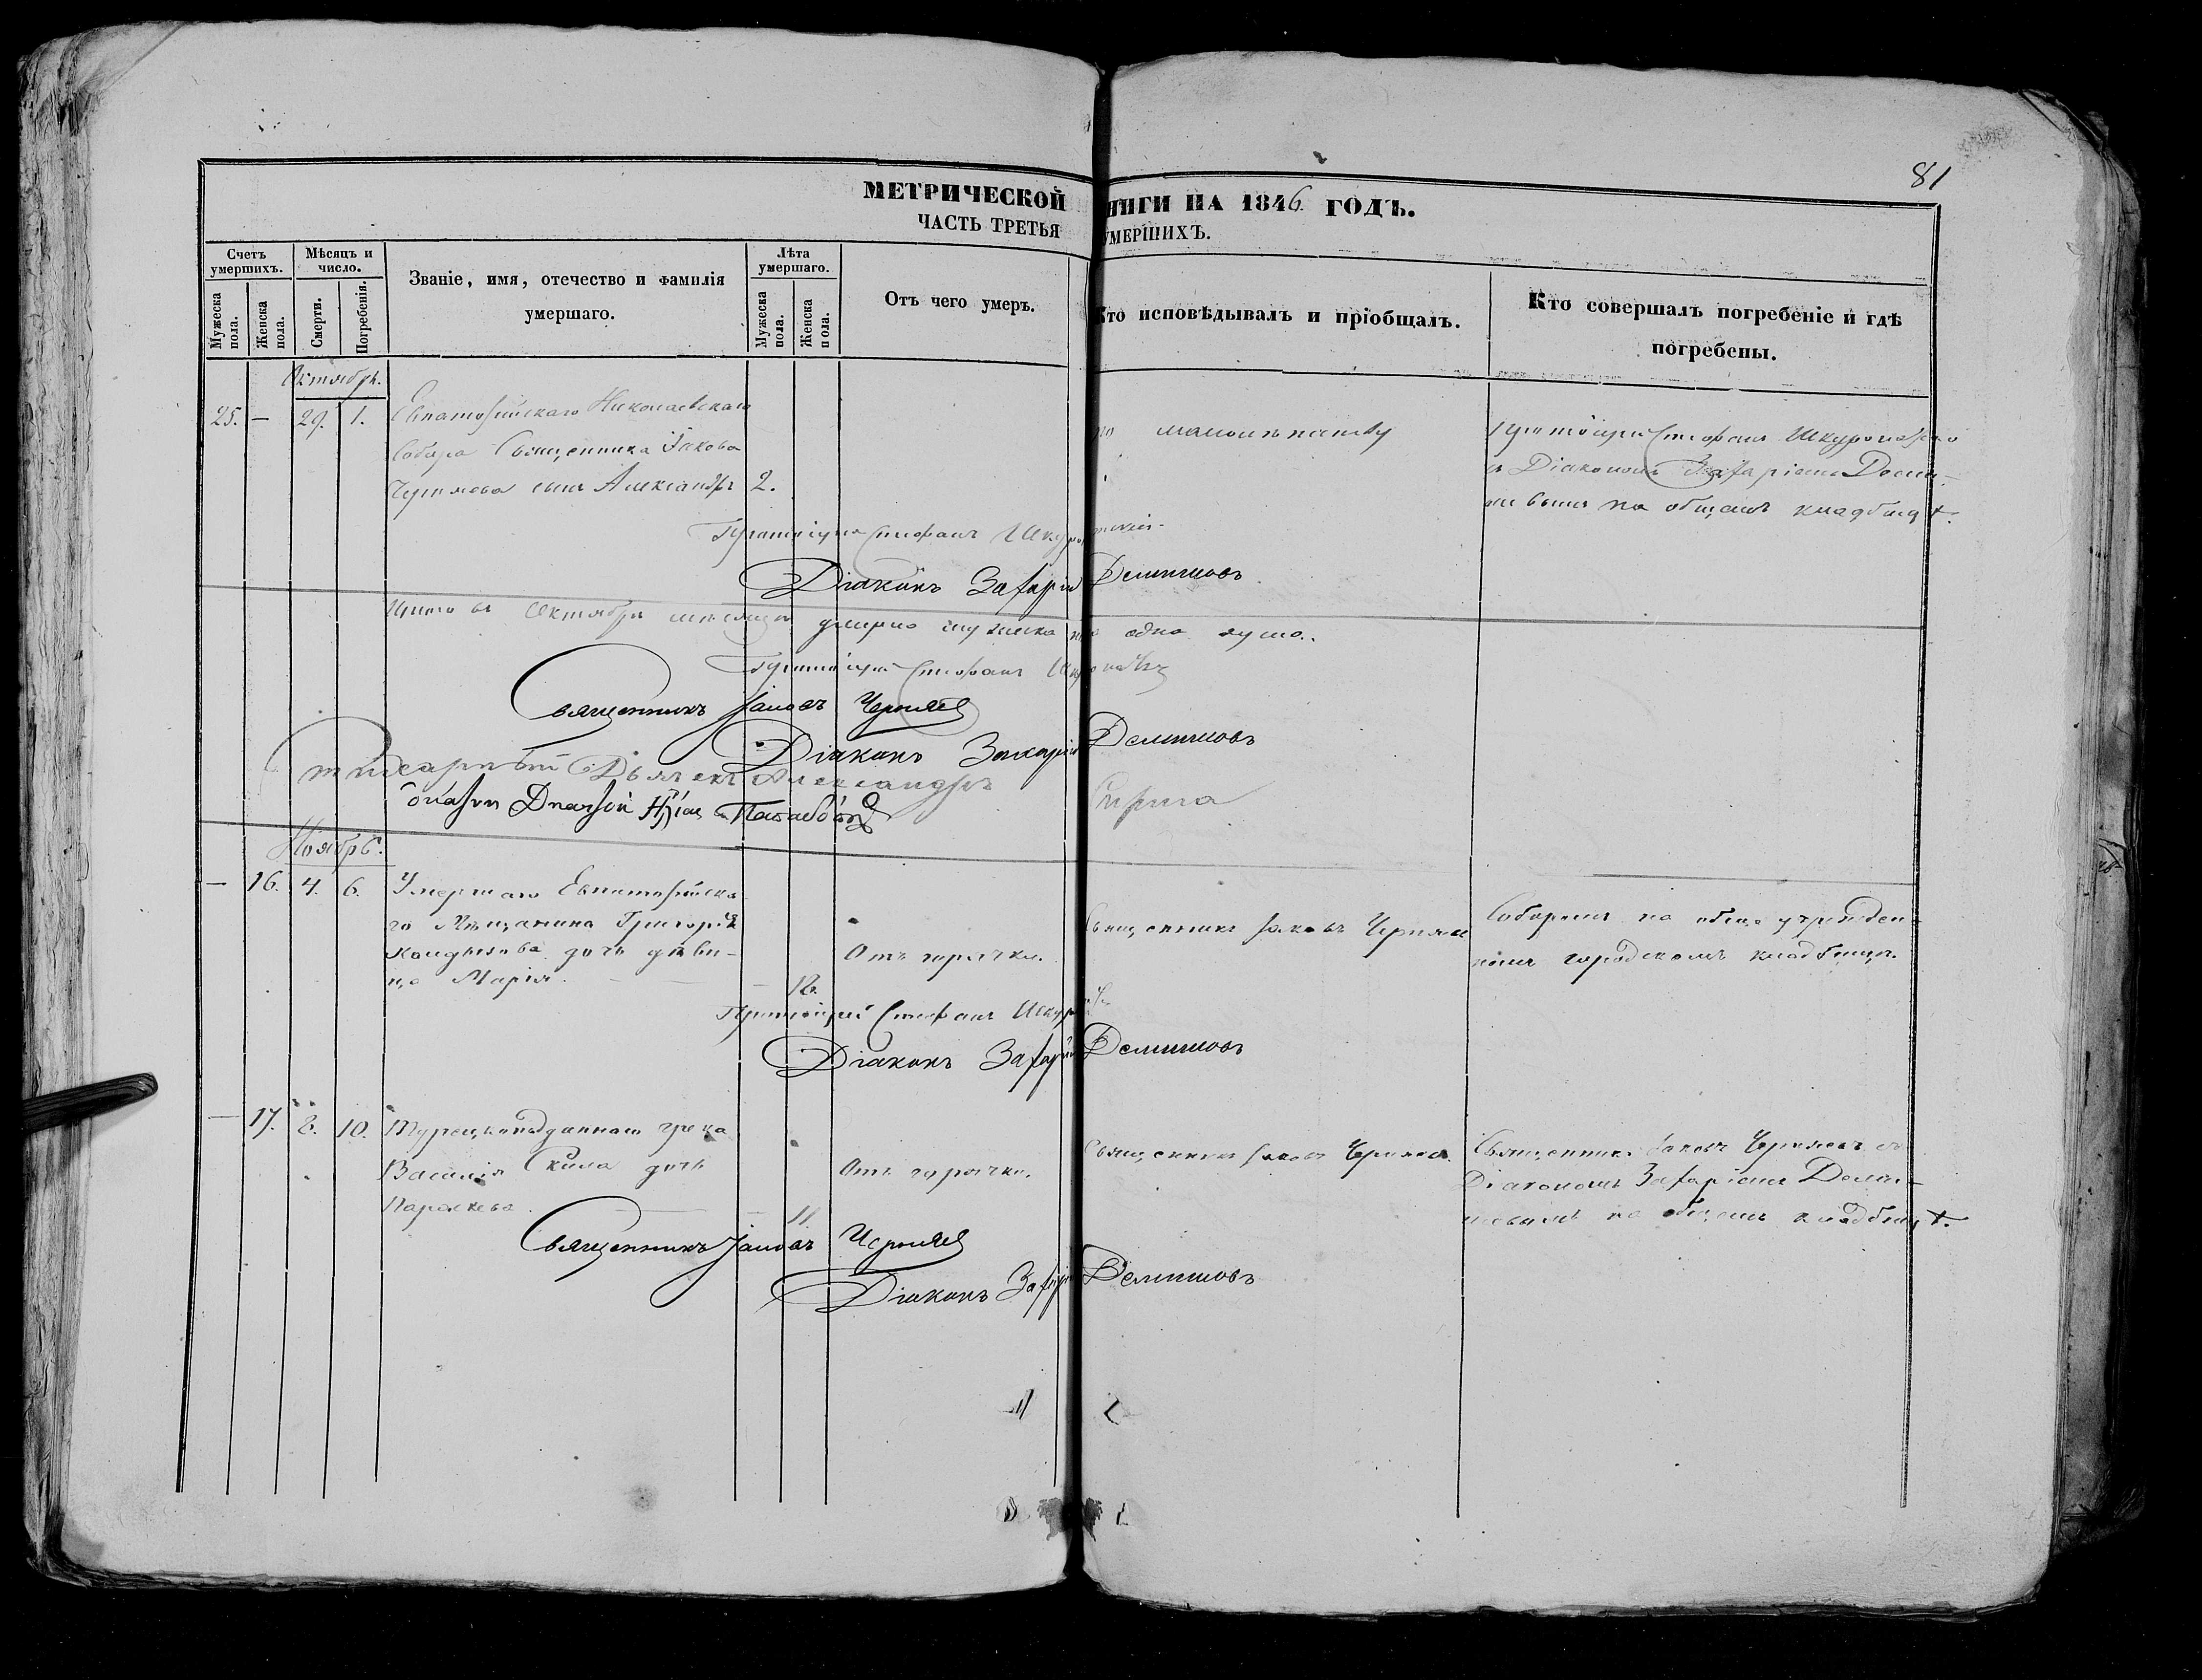 81
МЕТРИЧЕСКОЙ НИГИ НА 1846 ГОДЪ.
ЧАСТЬ ТРЕТЬЯ УМЕРШИХЪ.
Счетъ умершихъ.
Мужеска пола.
Женска пола.
Мѣсяцъ и число.
Смерти.
Погребенія.
Званіе, имя, отечество и фамилія умершаго.
Лѣта умершаго.
Мужеска пола.
Женска пола.
Отъ чего умеръ.
Кто исповѣдывалъ и пріобщалъ.
Кто совершалъ погребеніе и гдѣ погребены.
Октябрь.
25. — 29. 1. Евпаторійскаго Николаевскаго
Собора Священника Іакова
сынъ Александръ 2.
Протоіерей Стефанъ
и Діакономъ Захаріемъ
на общемъ кладбищѣ.
Протоіерей Стефанъ
Діаконъ Захарій Демишовъ
Итого въ Октябрѣ мѣсяцѣ умерло мужеска одна душа.
Протоіерей Стефанъ
Священникъ Іаковъ Черняев
Діаконъ Захарій Демишовъ
Дьячекъ Александръ
Ноябрь.
— 16. 4. 6. Умершаго Евпаторійска
го Мѣщанина Григорія
дочь дѣви-
ца Марія. — — — 12.
Отъ горячки.
Священникъ Іаковъ Черняев
Соборомъ на обще учрежден-
номъ городскомъ кладбищѣ.
Протоіерей Стефанъ
Діаконъ Захарій Демишовъ
— 17. 8. 10. Турецкоподданнаго грека
Василія Кила дочь
Параскева — — 11.
Отъ горячки.
Священникъ Іаковъ Черняев.
Священникъ Іаковъ Черняевъ съ
Діакономъ Захаріемъ Деми-
шовымъ на общемъ кладбищѣ.
Священникъ Іаковъ Черняев
Діаконъ Захарій Демишовъ